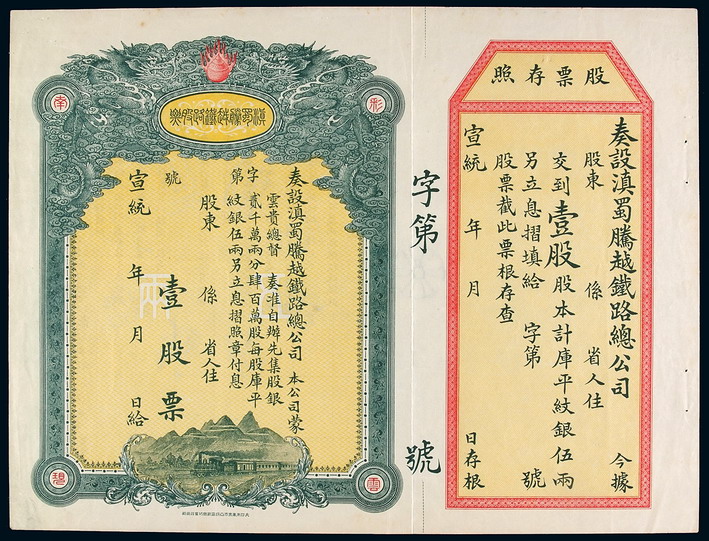 股票存照
奏設滇蜀騰越鐵路總公司 今據
股東 係 省人住
交到壹股股本計庫平紋銀伍兩
另立息摺填給 字第 號
股票截此票根存查
宣統 年 月 日存根
字第 號
滇蜀騰越鐵路股票
彩
雲
南
奏設滇蜀騰越鐵路總公司 本公司蒙
雲貴總督 奏准自辦先集股銀
貳千萬兩分肆百萬股每股庫平
紋銀伍兩另立息摺照章付息
字第 號
股東 係 省人住
壹股票
宣統 年 月 日給
五兩